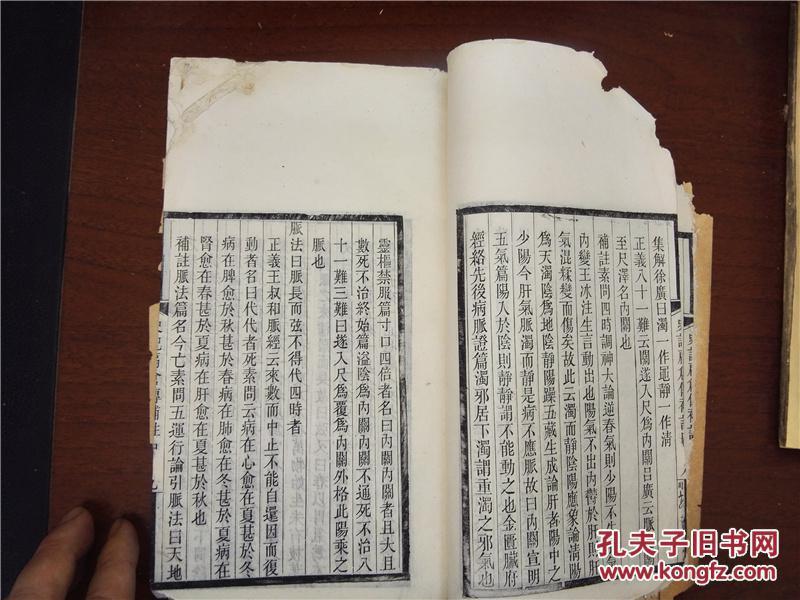 集解徐廣曰濁一作黽靜一作清
正義八十一難云關遂入尺爲內關呂廣云脈
至尺澤名內關也
補註素問四時調神大論逆春氣則少陽不生
內變王冰注生言動出也陽氣不出內鬱於肝則肝
氣混糅變而傷矣故此云濁而靜陰陽應象論清陽
爲天濁陰爲地陰靜陽躁五藏生成論肝者陽中之
少陽今肝氣脈濁而靜是病不應脈故曰內關宣明
五氣篇陽入於陰則靜靜謂不能動之也金匱臟府
經絡先後病脈證篇濁邪居下濁謂重濁之邪氣也
靈樞禁服篇寸口四倍者名曰內關內關者且大且
數死不治終始篇溢陰爲內關內關不通死不治八
十一難三難曰遂入尺爲覆爲內關外格此陽乘之
脈也
脈法曰脈長而弦不得代四時者
正義王叔和脈經云來數而中止不能自還因而復
動者名曰代代者死素問云病在心愈在夏甚於冬
病在脾愈於秋甚於春病在肺愈在冬甚於夏病在
腎愈在春甚於夏病在肝愈在夏甚於秋也
補註脈法篇名今亡素問五運行論引脈法曰天地
孔夫子旧书网
www.kongfz.com